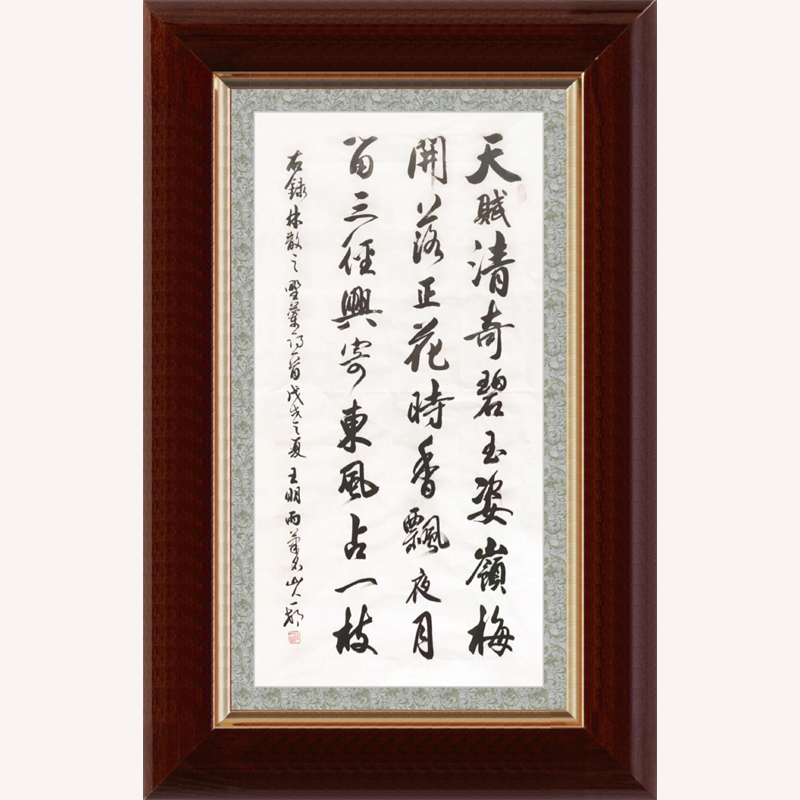 天賦清奇碧玉姿嶺梅
開落正花時香飄夜月
留三徑興寄東風占一枝
右録林散之墅蘭诗一首戊戌之夏王明雨